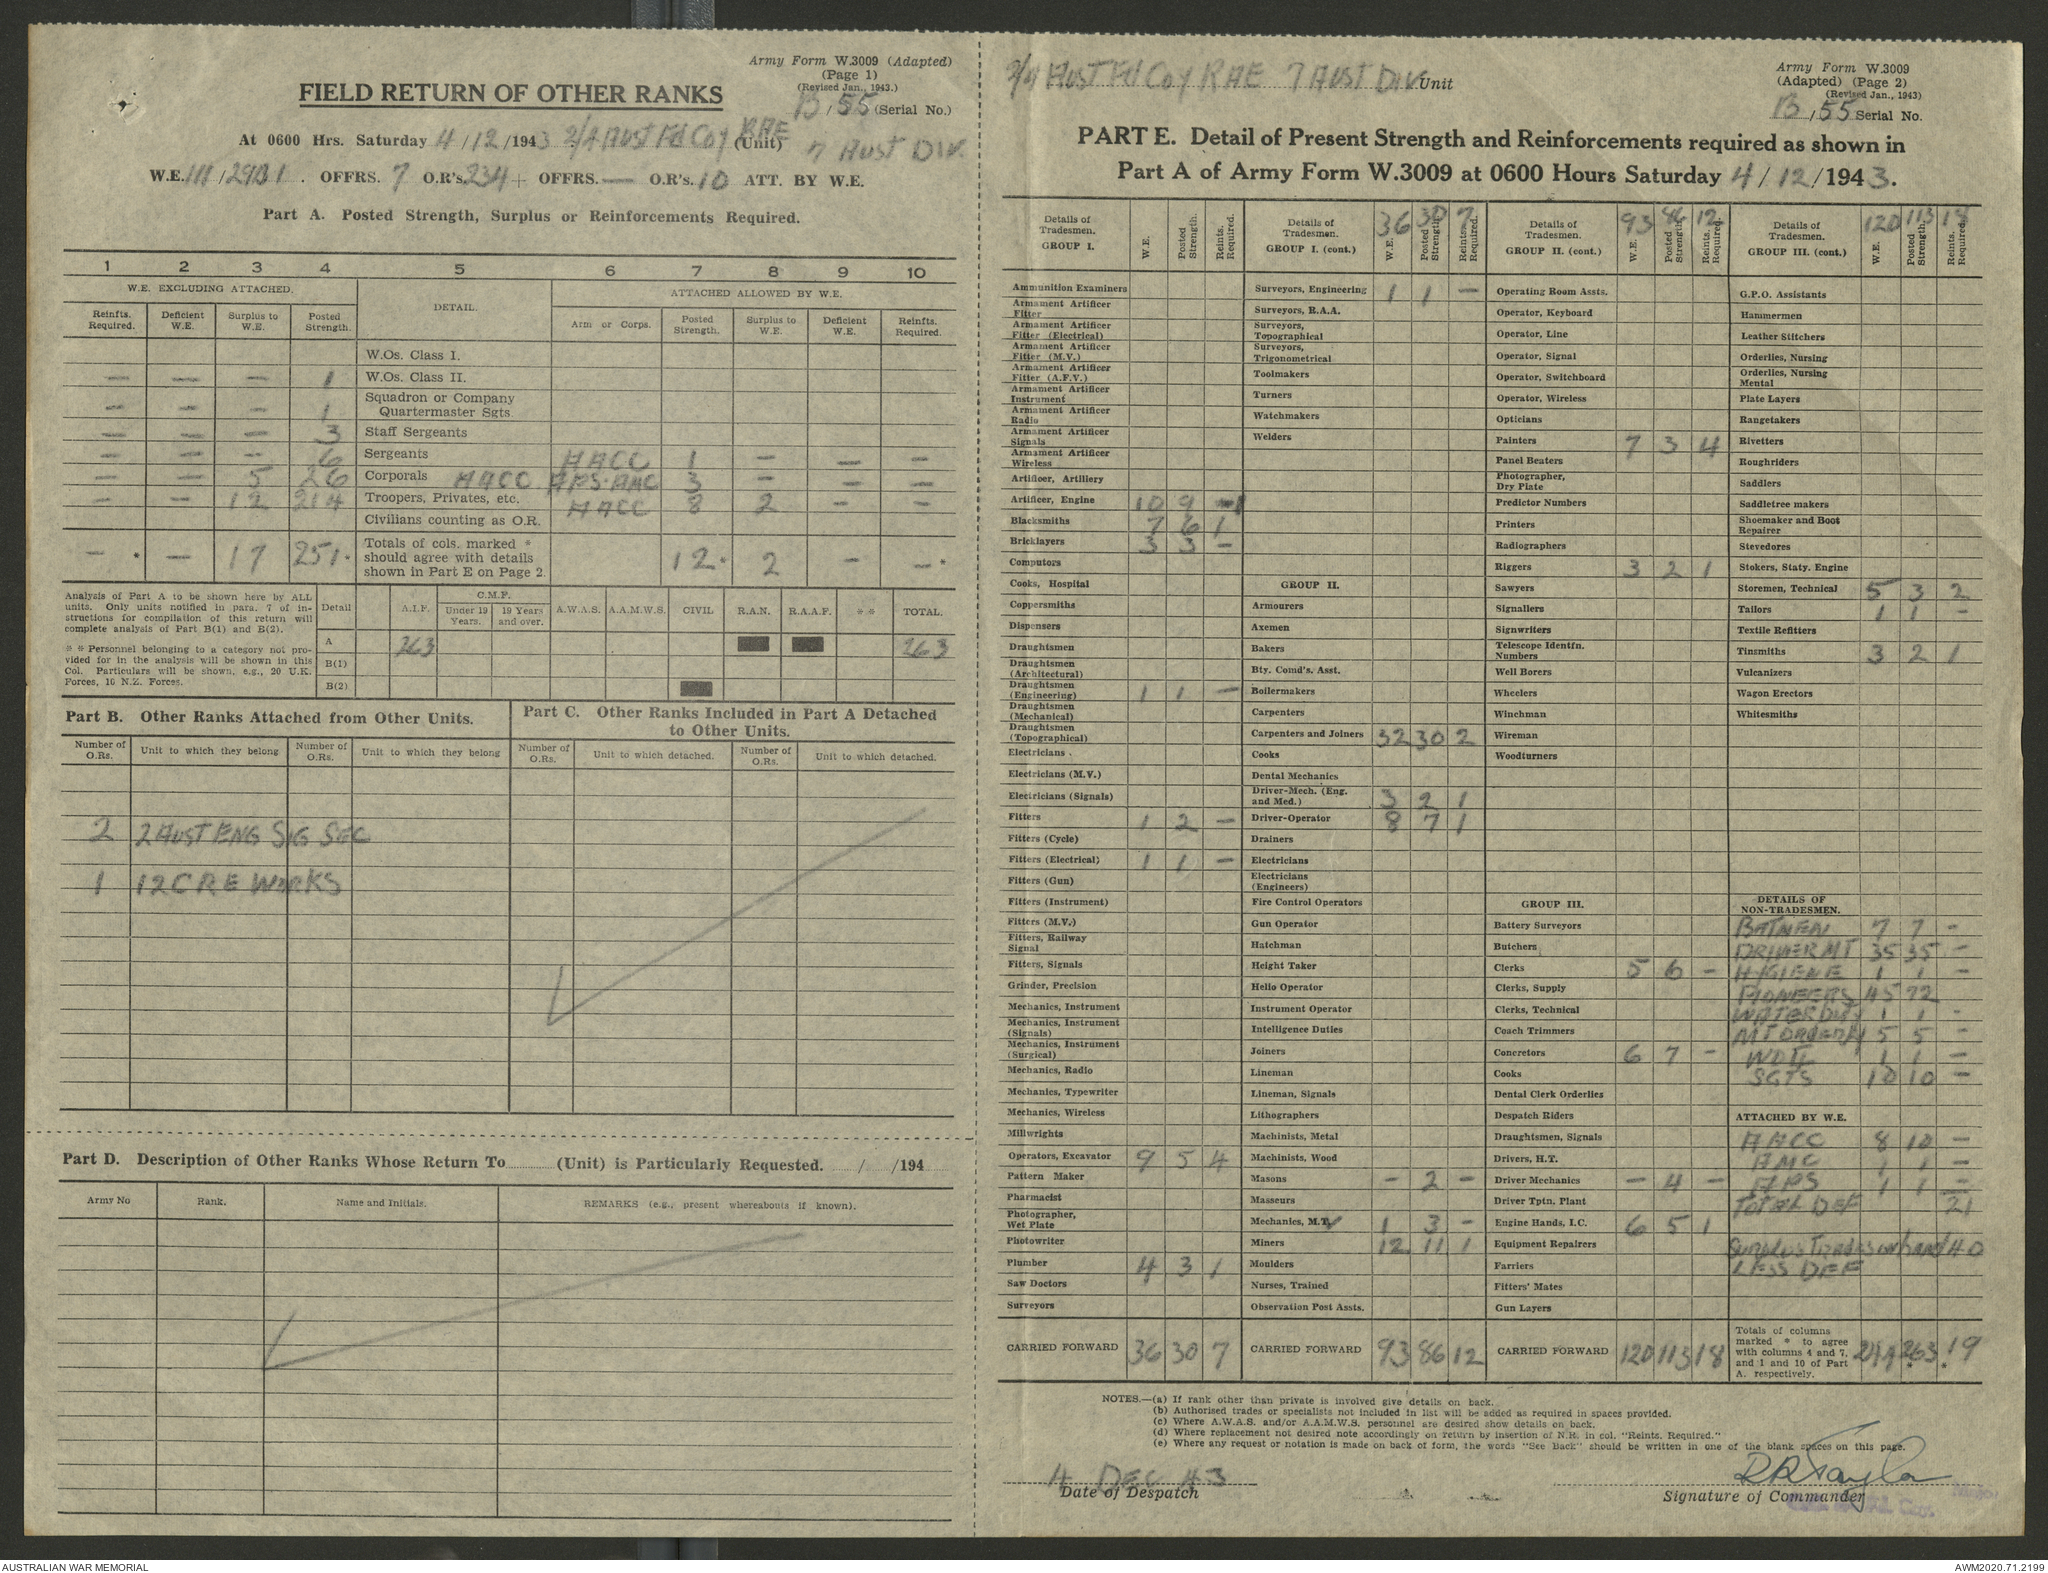 Army Form W.3009 (Adapted)
(Page 1)
(Revised Jan., 1943.)
FIELD RETURN OF OTHER RANKS
B/55 (Serial No.)
At 0600 Hrs. Saturday 4/12/1943 2/4 AUST Fd Coy RAE (Unit)
7 AUST DIV.
W.E. III/29B/1. OFFRS. 7 O.R's. 234 + OFFRS. — O.R's. 10 ATT. BY W.E.
Part A. Posted Strength, Surplus or Reinforcements Required.
1 2 3 4 5 6 7 8 9 10
W.E. EXCLUDING ATTACHED. DETAIL. ATTACHED ALLOWED BY W.E.
Reinfts. Required. Deficient W.E. Surplus to W.E. Posted Strength. Arm or Corps. Posted Strength. Surplus to W.E. Deficient W.E. Reinfts. Required.
W.Os. Class I.
— — — 1 W.Os. Class II.
— — — 1 Squadron or Company Quartermaster Sgts.
— — — 3 Staff Sergeants
— — — 6 Sergeants AACC 1 — — —
— — 5 26 Corporals AACC APS. AMC 3 — — —
— — 12 214 Troopers, Privates, etc. AACC 8 2 — —
Civilians counting as O.R.
— * — 17 251 * Totals of cols. marked * should agree with details shown in Part E on Page 2. 12 * 2 — — *
Analysis of Part A to be shown here by ALL units. Only units notified in para. 7 of instructions for compilation of this return will complete analysis of Part B(1) and B(2).
* * Personnel belonging to a category not provided for in the analysis will be shown in this Col. Particulars will be shown, e.g., 20 U.K. Forces, 10 N.Z. Forces.
Detail A.I.F. C.M.F. Under 19 Years. 19 Years and over. A.W.A.S. A.A.M.W.S. CIVIL R.A.N. R.A.A.F. * * TOTAL.
A 263 263
B(1)
B(2)
Part B. Other Ranks Attached from Other Units.
Number of O.Rs. Unit to which they belong Number of O.Rs. Unit to which they belong
2 2 AUST ENG SIG SEC
1 12 CRE WORKS
Part C. Other Ranks Included in Part A Detached to Other Units.
Number of O.Rs. Unit to which detached. Number of O.Rs. Unit to which detached.
Part D. Description of Other Ranks Whose Return To (Unit) is Particularly Requested. / /194
Army No Rank. Name and Initials. REMARKS (e.g., present whereabouts if known).
2/4 AUST Fd Coy RAE 7 AUST DIV Unit
Army Form W.3009
(Adapted) (Page 2)
(Revised Jan., 1943)
B/55 Serial No.
PART E. Detail of Present Strength and Reinforcements required as shown in
Part A of Army Form W.3009 at 0600 Hours Saturday 4/12/1943.
Details of Tradesmen. GROUP I. W.E. Posted Strength. Reints. Required.
Ammunition Examiners
Armament Artificer Fitter
Armament Artificer Fitter (Electrical)
Armament Artificer Fitter (M.V.)
Armament Artificer Fitter (A.F.V.)
Armament Artificer Instrument
Armament Artificer Radio
Armament Artificer Signals
Armament Artificer Wireless
Artificer, Artillery
Artificer, Engine 10 9 1
Blacksmiths 7 6 1
Bricklayers 3 3 —
Computors
Cooks, Hospital
Coppersmiths
Dispensers
Draughtsmen
Draughtsmen (Architectural)
Draughtsmen (Engineering) 1 1 —
Draughtsmen (Mechanical)
Draughtsmen (Topographical)
Electricians .
Electricians (M.V.)
Electricians (Signals)
Fitters 1 2 —
Fitters (Cycle)
Fitters (Electrical) 1 1 —
Fitters (Gun)
Fitters (Instrument)
Fitters (M.V.)
Fitters, Railway Signal
Fitters, Signals
Grinder, Precision
Mechanics, Instrument
Mechanics, Instrument (Signals)
Mechanics, Instrument (Surgical)
Mechanics, Radio
Mechanics, Typewriter
Mechanics, Wireless
Millwrights
Operators, Excavator 9 5 4
Pattern Maker
Pharmacist
Photographer, Wet Plate
Photowriter
Plumber 4 3 1
Saw Doctors
Surveyors
CARRIED FORWARD 36 30 7
Details of Tradesmen. GROUP I. (cont.) 36 W.E. 30 Posted Strength 7 Reints. Required.
Surveyors, Engineering 1 1 —
Surveyors, R.A.A.
Surveyors, Topographical
Surveyors, Trigonometrical
Toolmakers
Turners
Watchmakers
Welders
GROUP II.
Armourers
Axemen
Bakers
Bty. Comd's. Asst.
Boilermakers
Carpenters
Carpenters and Joiners 32 30 2
Cooks
Dental Mechanics
Driver-Mech. (Eng. and Med.) 3 2 1
Driver-Operator 8 7 1
Drainers
Electricians
Electricians (Engineers)
Fire Control Operators
Gun Operator
Hatchman
Height Taker
Helio Operator
Instrument Operator
Intelligence Duties
Joiners
Lineman
Lineman, Signals
Lithographers
Machinists, Metal
Machinists, Wood
Masons — 2 —
Masseurs
Mechanics, M.T. 1 3 —
Miners 12 11 1
Moulders
Nurses, Trained
Observation Post Assts.
CARRIED FORWARD 93 86 12
Details of Tradesmen. GROUP II. (cont.) 93 W.E. 86 Posted Strength 12 Reints. Required
Operating Room Assts.
Operator, Keyboard
Operator, Line
Operator, Signal
Operator, Switchboard
Operator, Wireless
Opticians
Painters 7 3 4
Panel Beaters
Photographer, Dry Plate
Predictor Numbers
Printers
Radiographers
Riggers 3 2 1
Sawyers
Signallers
Signwriters
Telescope Identfn. Numbers
Well Borers
Wheelers
Winchman
Wireman
Woodturners
GROUP III.
Battery Surveyors
Butchers
Clerks 5 6 —
Clerks, Supply
Clerks, Technical
Coach Trimmers
Concretors 6 7 —
Cooks
Dental Clerk Orderlies
Despatch Riders
Draughtsmen, Signals
Drivers, H.T.
Driver Mechanics — 4 —
Driver Tptn. Plant
Engine Hands, I.C. 6 5 1
Equipment Repairers
Farriers
Fitters' Mates
Gun Layers
CARRIED FORWARD 120 113 18
Details of Tradesmen. GROUP III. (cont.) 120 W.E. 113 Posted Strength. 18 Reints. Required.
G.P.O. Assistants
Hammermen
Leather Stitchers
Orderlies, Nursing
Orderlies, Nursing Mental
Plate Layers
Rangetakers
Rivetters
Roughriders
Saddlers
Saddletree makers
Shoemaker and Boot Repairer
Stevedores
Stokers, Staty. Engine
Storemen, Technical 5 3 2
Tailors 1 1 —
Textile Refitters
Tinsmiths 3 2 1
Vulcanizers
Wagon Erectors
Whitesmiths
DETAILS OF NON-TRADESMEN.
BATMEN 7 7 —
DRIVER MT 35 35 —
HYGIENE 1 1 —
PIONEERS 45 72
WATER DUTY 1 1 —
MT ORDERLY 5 5 —
WO II 1 1 —
SGTS 10 10 —
ATTACHED BY W.E.
AACC 8 10 —
AMC 1 1 —
APS 1 1 —
TOTAL DEF 21
SURPLUS TRADES ON hand 40
LESS DEF
Totals of columns marked * to agree with columns 4 and 7, and 1 and 10 of Part A. respectively. 244 263 * 19 *
NOTES.—(a) If rank other than private is involved give details on back.
(b) Authorised trades or specialists not included in list will be added as required in spaces provided.
(c) Where A.W.A.S. and/or A.A.M.W.S. personnel are desired show details on back.
(d) Where replacement not desired note accordingly on return by insertion of N.R. in col. "Reints. Required."
(e) Where any request or notation is made on back of form, the words "See Back" should be written in one of the blank spaces on this page.
4 DEC 43
Date of Despatch
RR Taylor
Signature of Commander
AUSTRALIAN WAR MEMORIAL
AWM2020.71.2199